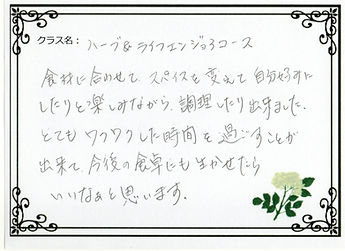 クラス名: ハーブ&ライフエンジョイコース
食材に合わせて、スパイスを変えて自分好みに
したりと楽しみながら、調理したり出来ました。
とてもワクワクした時間を過ごすことが
出来て、今後の食卓にも生かせたら
いいなぁと思います。